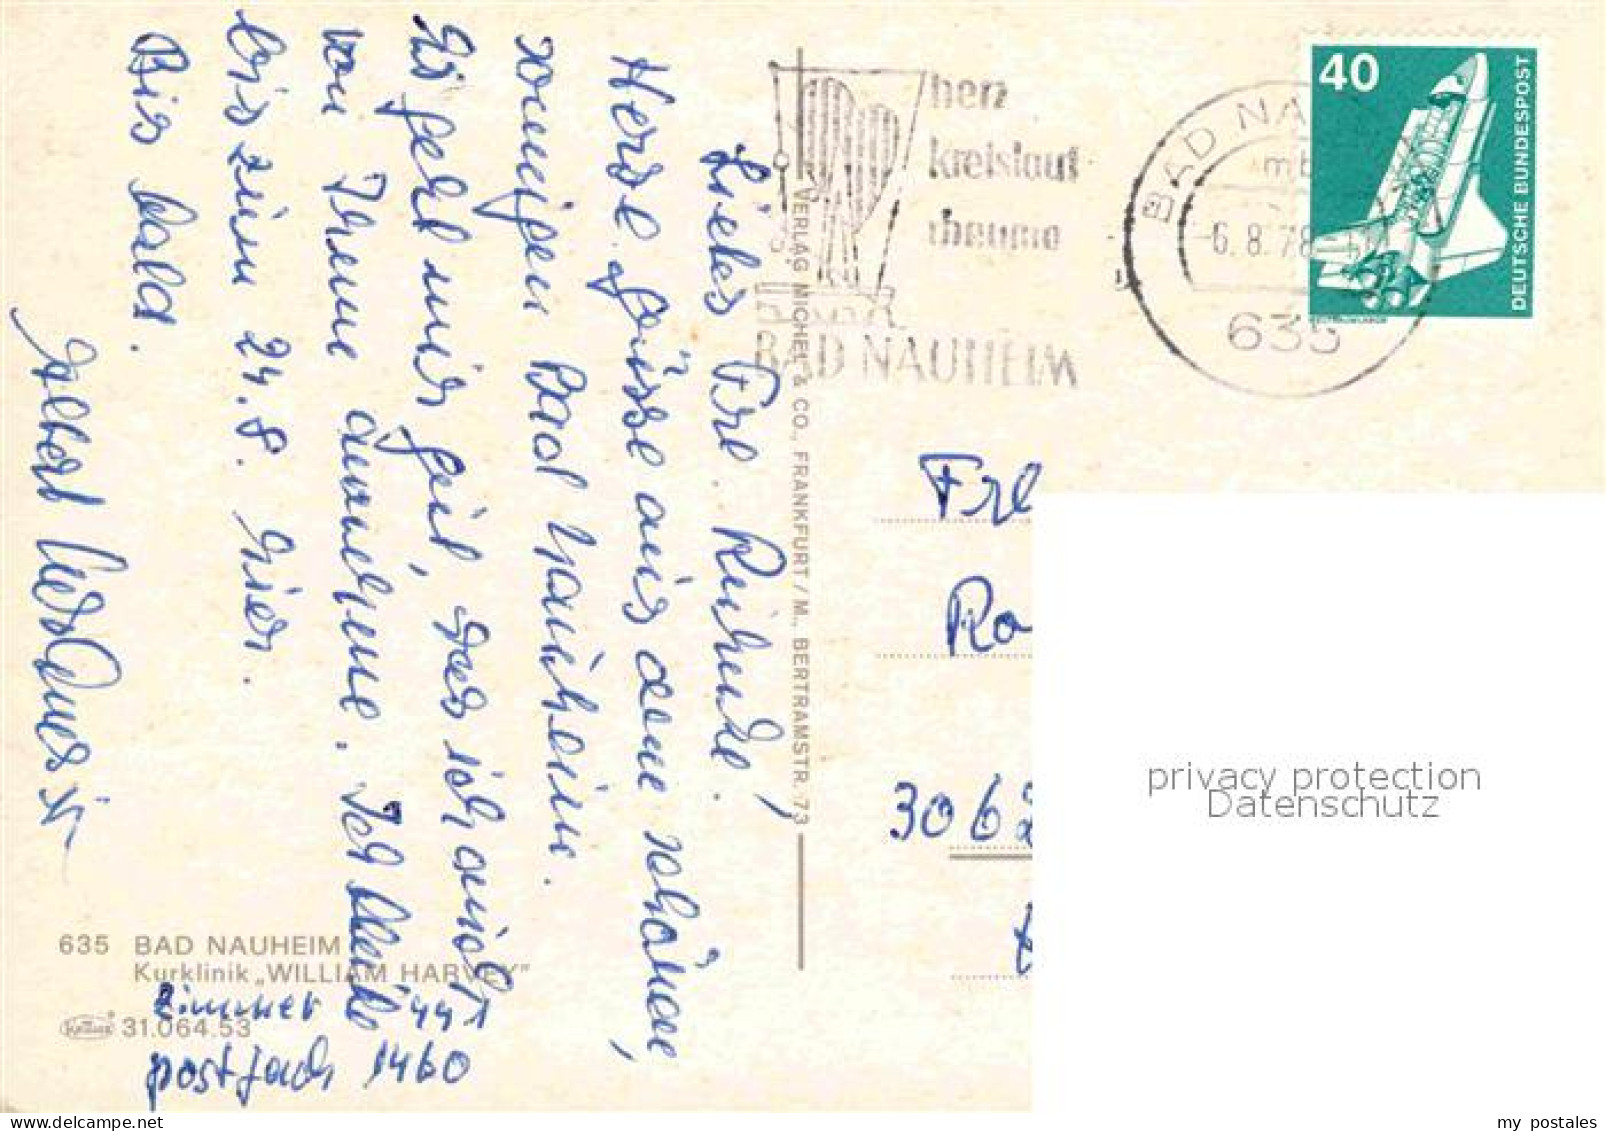 Liebes Frl. Ruhende!
Herzl. Grüsse aus dem schönen,
sonnigen Bad Nauheim.
Es geht mir gut, was ich auch
von Ihnen annehme. Ich bleibe
bis zum 24. 8. hier.
Bis bald.
Zimmer 441
postfach 1460
635 BAD NAUHEIM
Kurklinik „WILLIAM HARVEY"
31.064.53
VERLAG MICHEL & CO., FRANKFURT/M., BERTRAMSTR. 73
herz
kreislauf
rheuma
BAD NAUHEIM
BAD NA
mb
-6.8.78
635
40
DEUTSCHE BUNDESPOST
Frl
Ra
3062
privacy protection
Datenschutz
my postales